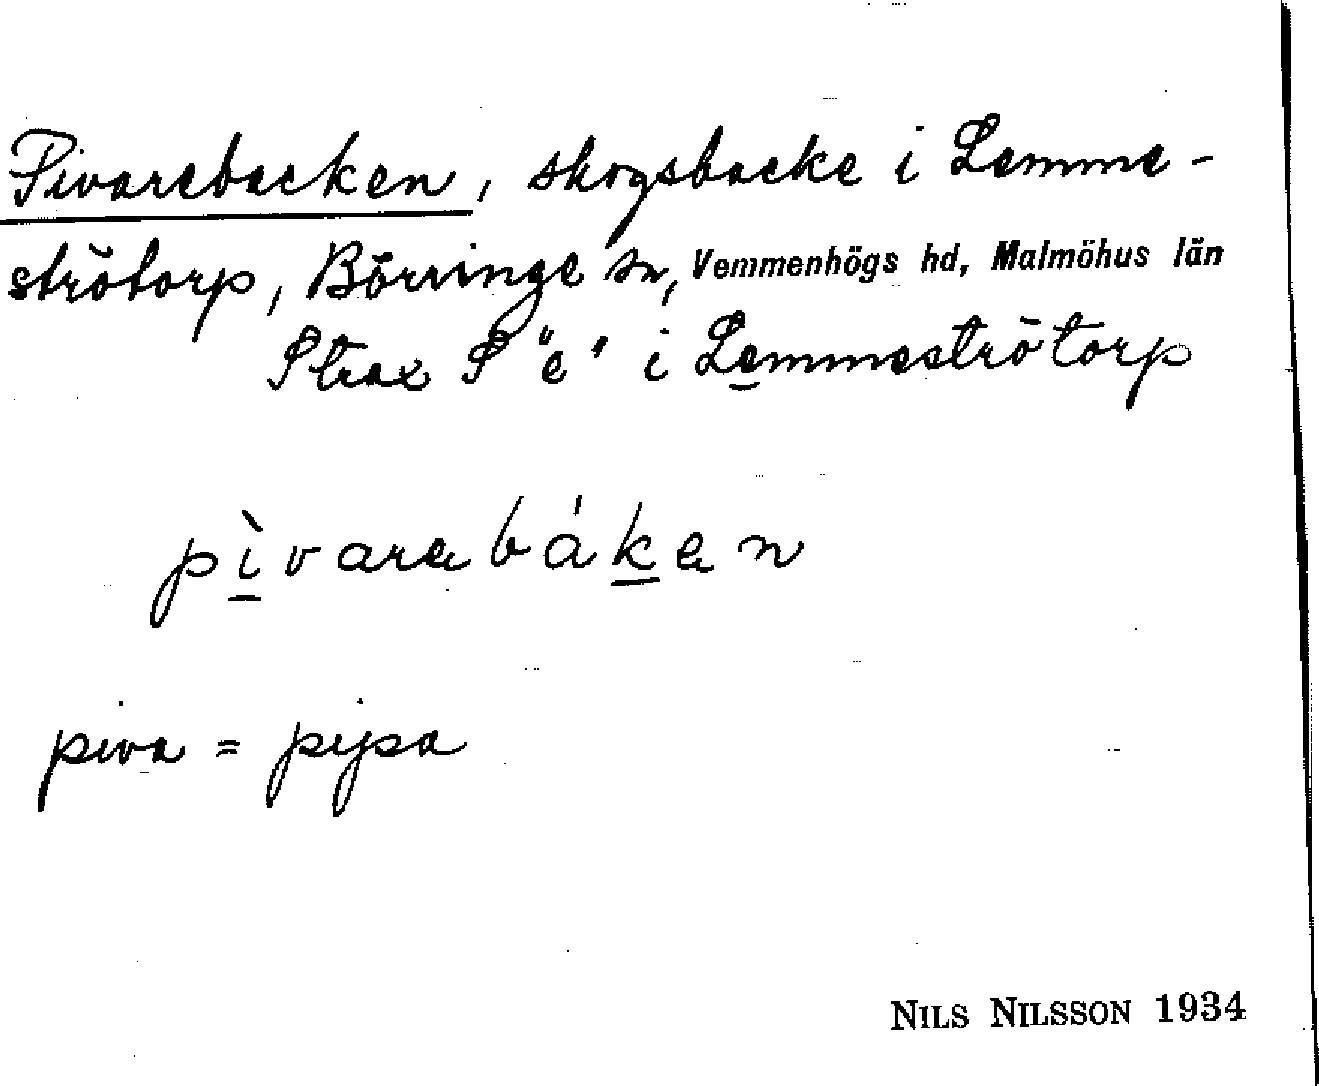 Pivarebacken, skogsbacke i Lemme-
strötorp, Börringe sn, Vemmenhögs hd, Malmöhus län
Strax S "e" i Lemmeströtorp
pìvarabákan
piva = pipa
NILS NILSSON 1934